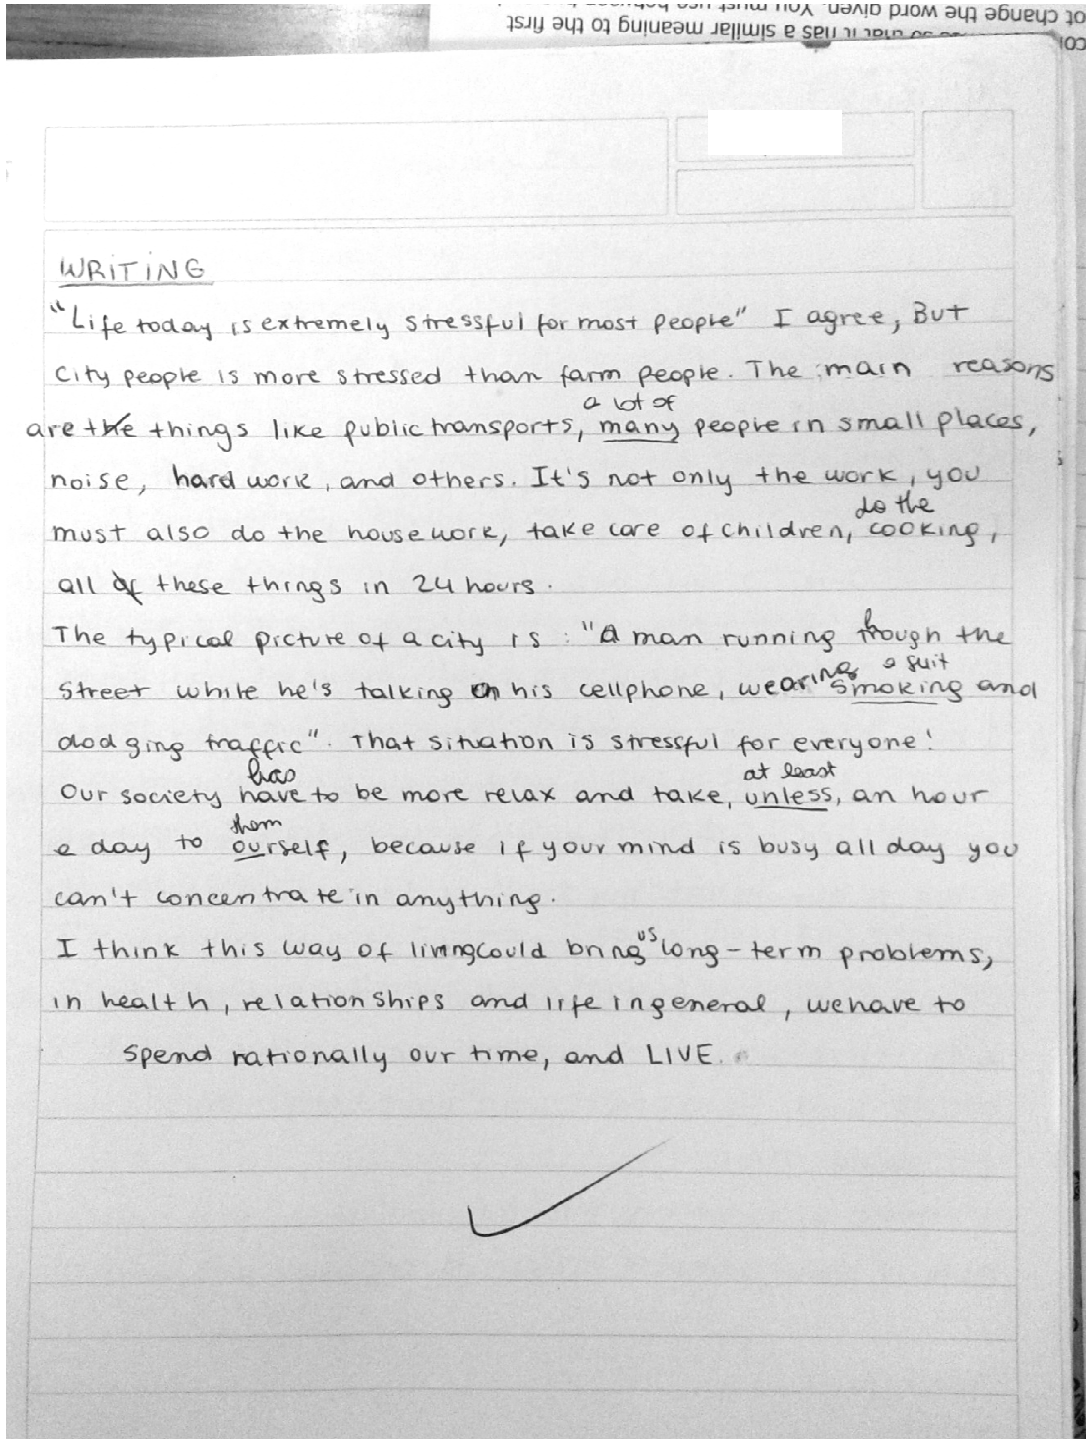 ot change the word given. You must use between
so that it has a similar meaning to the first
WRITING
"Life today is extremely stressful for most people" I agree, But
City people is more stressed than farm people. The main reasons
a lot of
are the things like public transports, many people in small places,
noise, hard work, and others. It's not only the work, you
do the
must also do the housework, take care of children, cooking,
all of these things in 24 hours.
The typical picture of a city is: "A man running trough the
a suit
Street while he's talking on his cellphone, wearing smoking and
dodging traffic". That situation is stressful for everyone!
has at least
Our society have to be more relax and take, unless, an hour
them
a day to ourself, because if your mind is busy all day you
can't concentrate in anything.
us
I think this way of living could bring long-term problems,
in health, relationships and life in general, we have to
spend rationally our time, and LIVE.